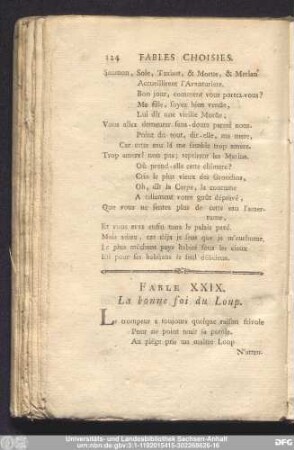 124 FABLES CHOISIES.
Saumon, Sole, Turbot, & Morue, & Merlan
Accueillirent l'Avanturière.
Bon jour, comment vous portez-vous?
Ma fille, soyez bien venue,
Lui dit une vieille Morue,
Vous allez demeurer sans-doute parmi nous.
Point du tout, dit-elle, ma mere,
Car cette eau là me semble trop amere.
Trop amere? non pas; repartent les Merlans.
Où prend-elle cette chimere?
Cria le plus vieux des
Oh, dit la Carpe, la coutume
A tellement votre goût dépravé,
Que vous ne sentez plus de cette eau l'amer-
tume,
Et vous avez enfin tous le palais pavé.
Mais adieu; car déja je sens que je m'enrhume.
Le plus méchant pays habité sous les cieux
Est pour ses habitans le seul délicieux.
FABLE XXIX.
La bonne foi du Loup.
Le trompeur a toujours quelque raison frivole
Pour ne point tenir sa parole.
Au piége pris un maître Loup
N'atten-
Universitäts- und Landesbibliothek Sachsen-Anhalt
urn:nbn:de:gbv:3:1-1192015415-302268626-16
DFG